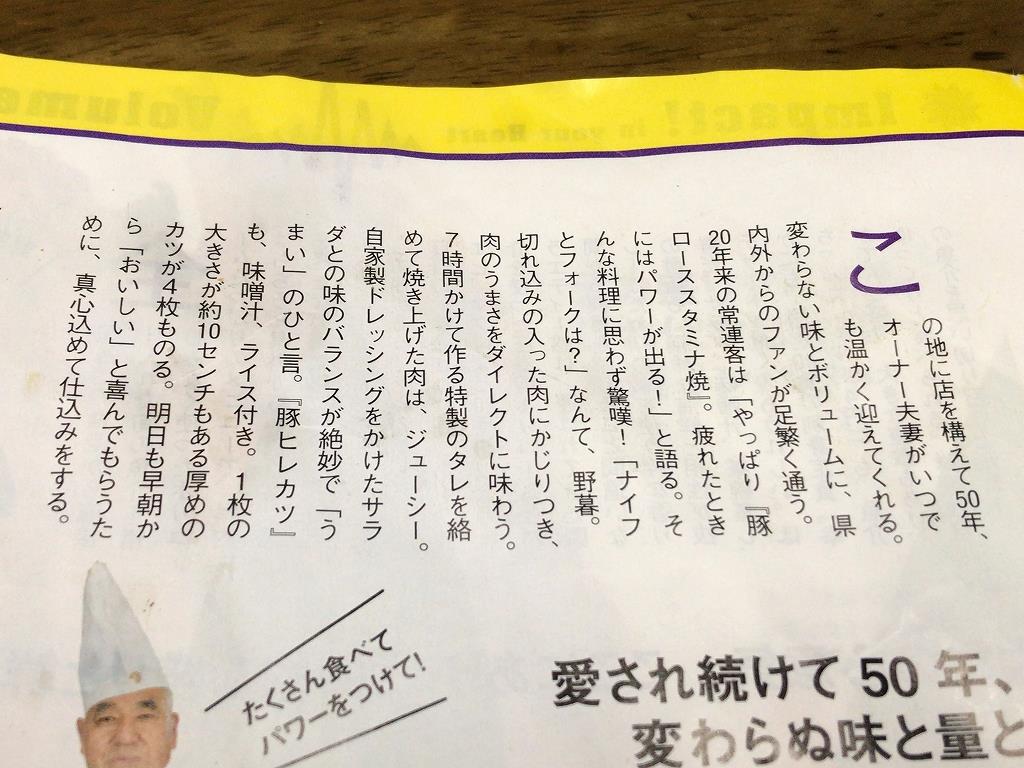 この地に店を構えて50年、
オーナー夫妻がいつで
も温かく迎えてくれる。
変わらない味とボリュームに、県
内外からのファンが足繁く通う。
20年来の常連客は「やっぱり『豚
ローススタミナ焼』。疲れたとき
にはパワーが出る！」と語る。そ
んな料理に思わず驚嘆！「ナイフ
とフォークは？」なんて、野暮。
切れ込みの入った肉にかじりつき、
肉のうまさをダイレクトに味わう。
7時間かけて作る特製のタレを絡
めて焼き上げた肉は、ジューシー。
自家製ドレッシングをかけたサラ
ダとの味のバランスが絶妙で「う
まい」のひと言。『豚ヒレカツ』
も、味噌汁、ライス付き。1枚の
大きさが約10センチもある厚めの
カツが4枚ものる。明日も早朝か
ら「おいしい」と喜んでもらうた
めに、真心込めて仕込みをする。
たくさん食べて
パワーをつけて!
愛され続けて50年、
変わらぬ味と量と